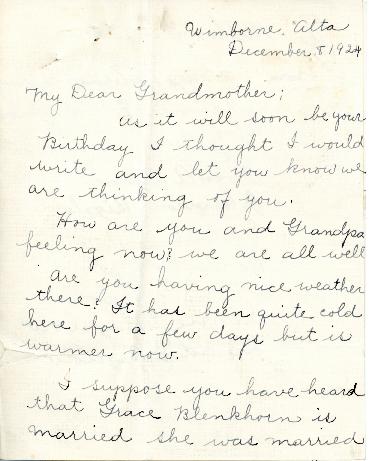 Wimborne, Alta
December, 8 1924
My Dear Grandmother;
as it will soon be your
Birthday I thought I would
write and let you know we
are thinking of you.
How are you and Grandpa
feeling now? we are all well
are you having nice weather
there? It has been quite cold
here for a few days but is
warmer now.
I suppose you have heard
that Grace Blenkhorn is
married she was married